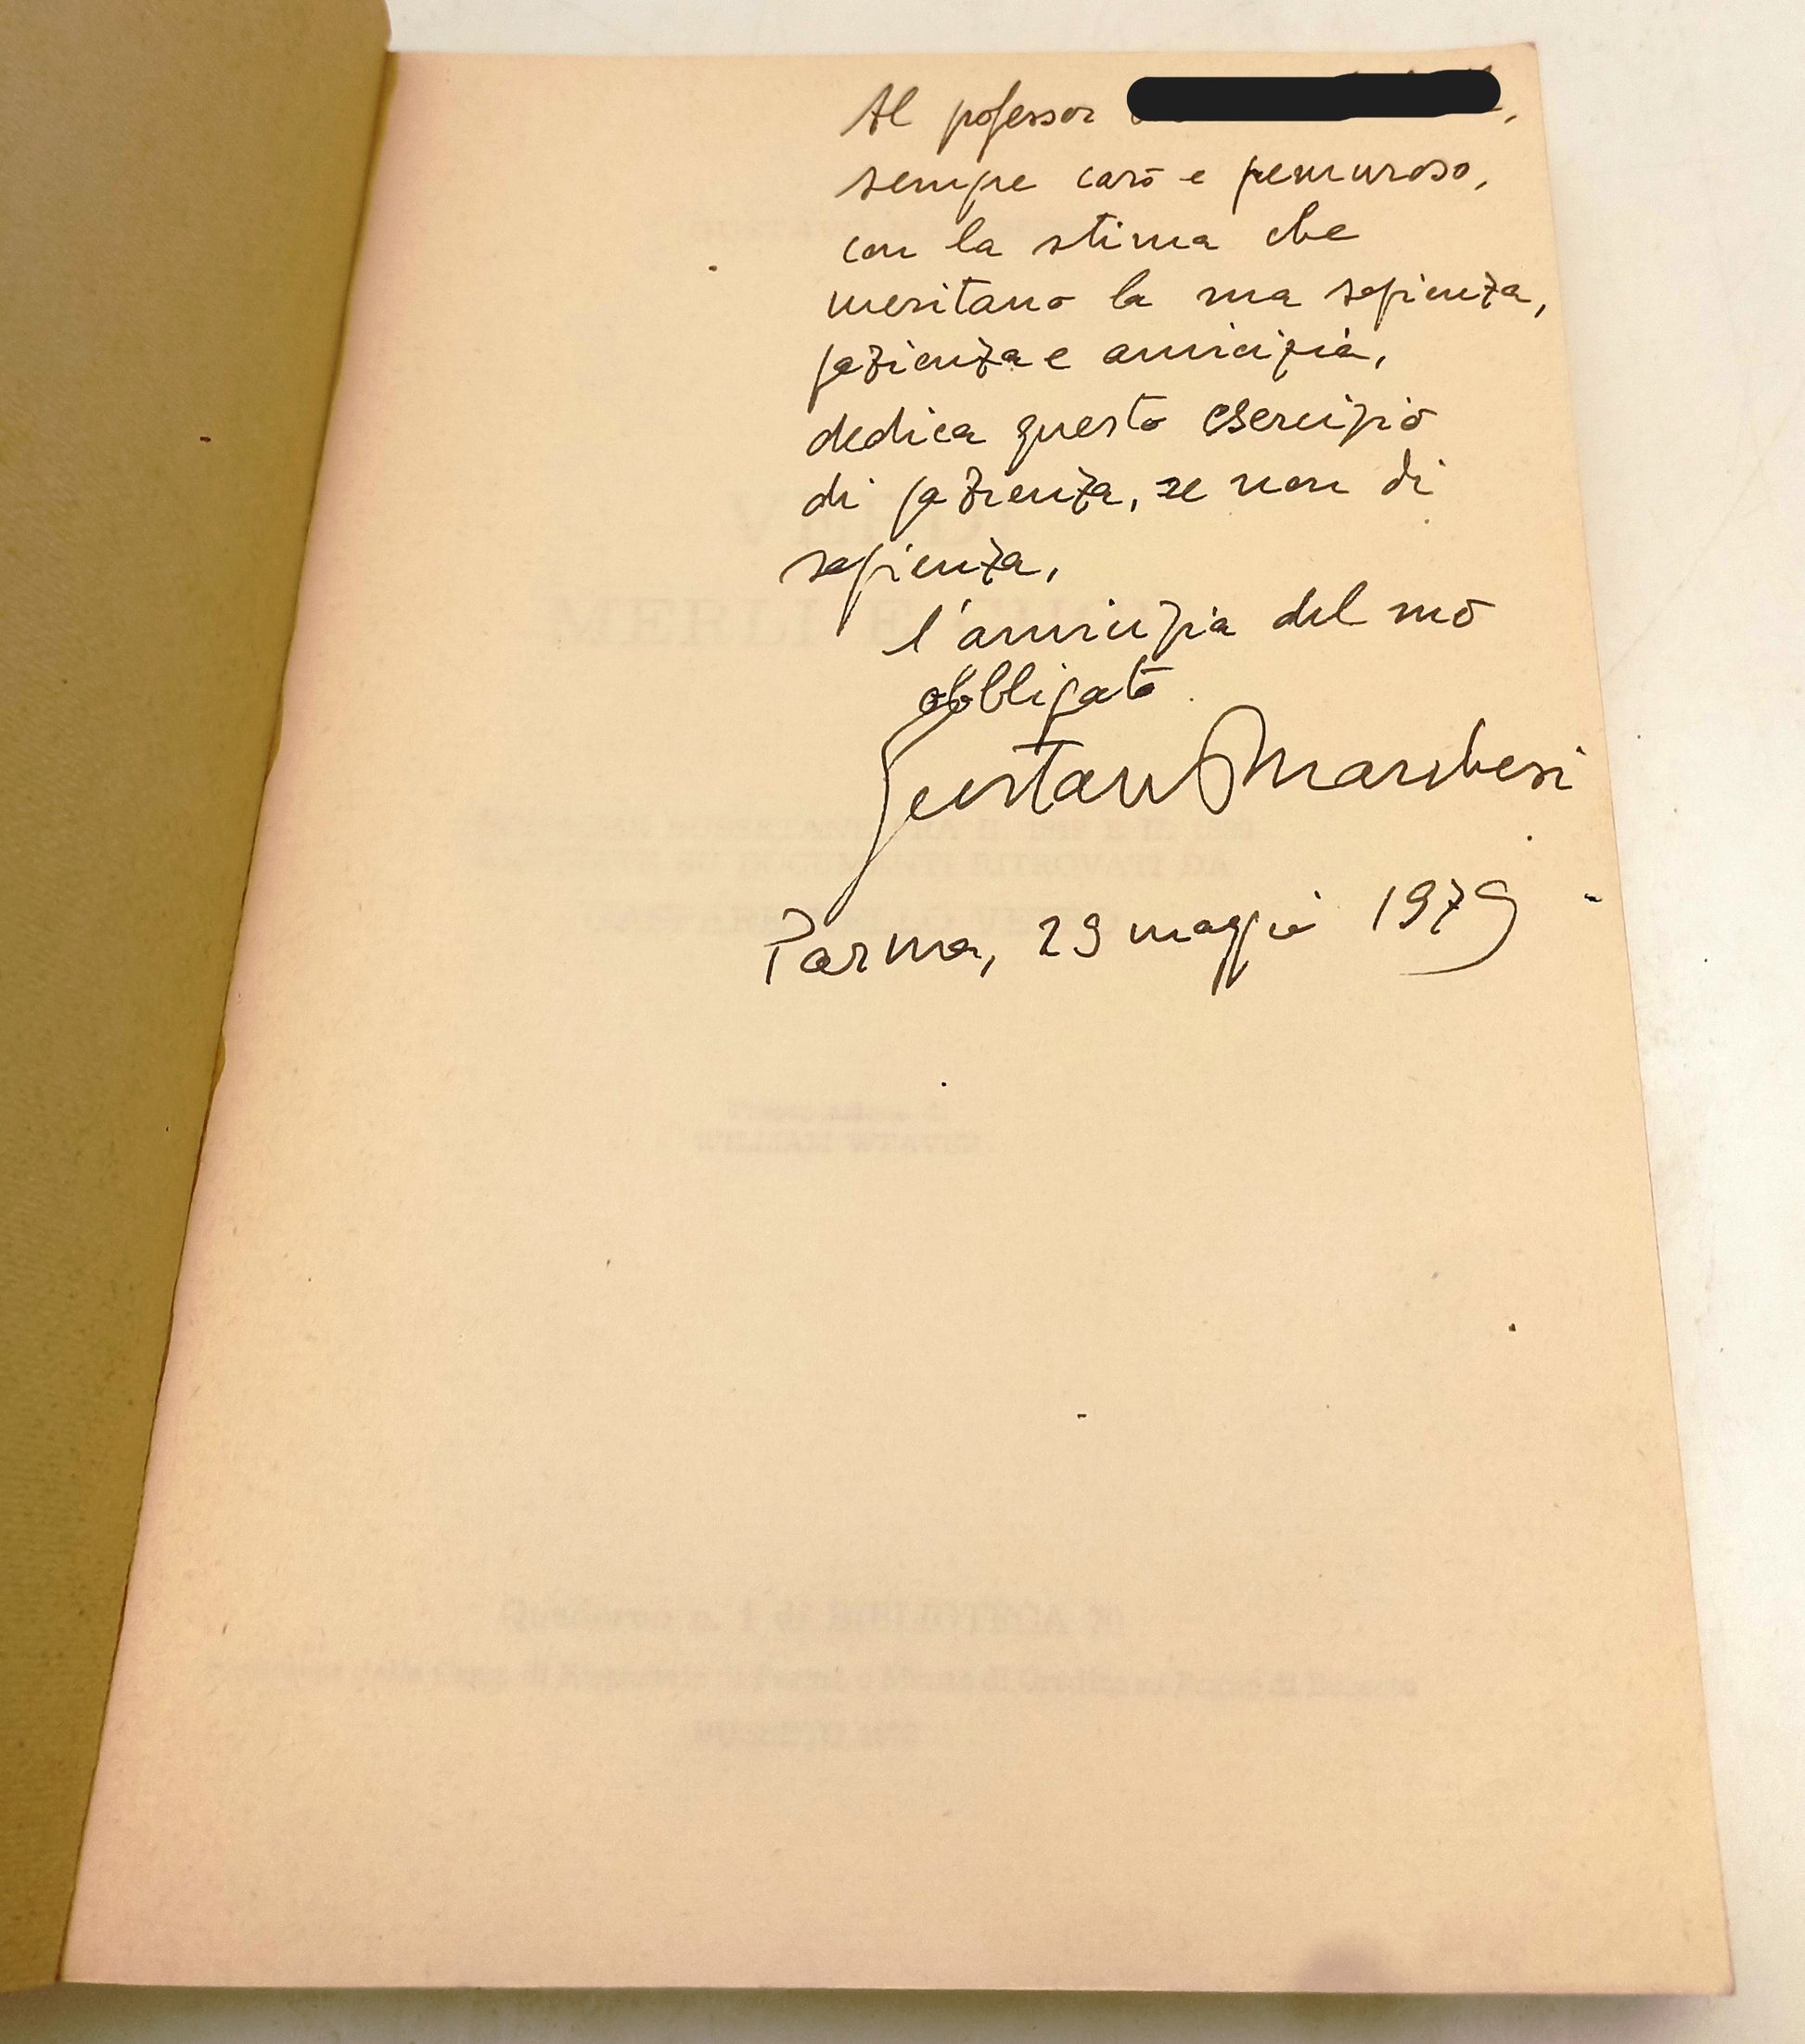 Al professor
sempre caro e premuroso,
con la stima che
meritano la sua sapienza,
pazienza e amicizia,
dedica questo esercizio
di pazienza, se non di
sapienza,
l'amicizia del suo
obbligato
Gustavo Marchesi
Parma, 29 maggio 1979
VERDI
MERLI E
WILLIAM WEAVER
Quaderno n. 1 di BIBLIOTECA 70